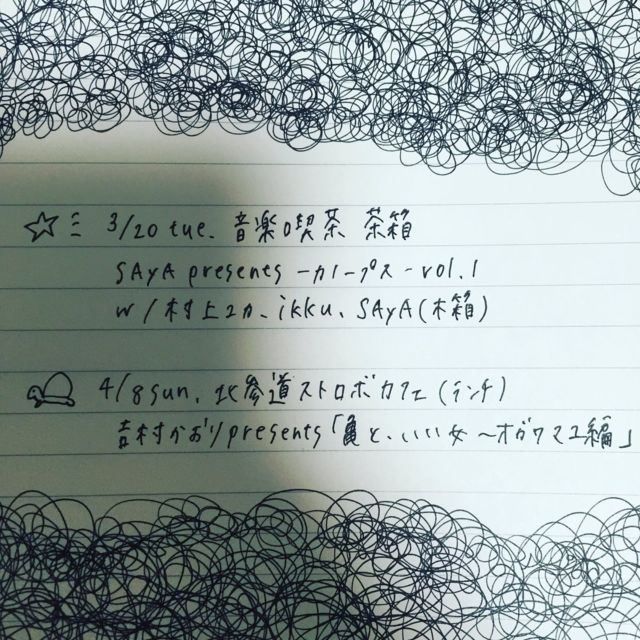 3/20 tue. 音楽喫茶 茶箱
SAyA presents -カノープス- vol.1
w/村上ユカ、ikku、SAyA(木箱)
4/8 sun. 北参道ストロボカフェ(ランチ)
吉村かおりpresents「亀と、いい女〜オガワマユ編」